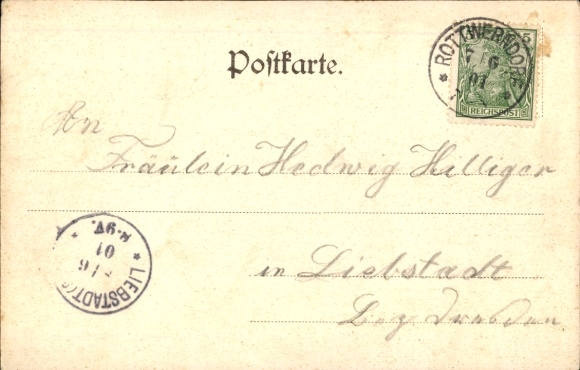 Postkarte.
5
REICHSPOST
ROTTWERNDORF
7 6
01
An
Fräulein Hedwig Hilliger
in Liebstadt
Bez Dresden
LIEBSTADT
7/6
01
8.9V.